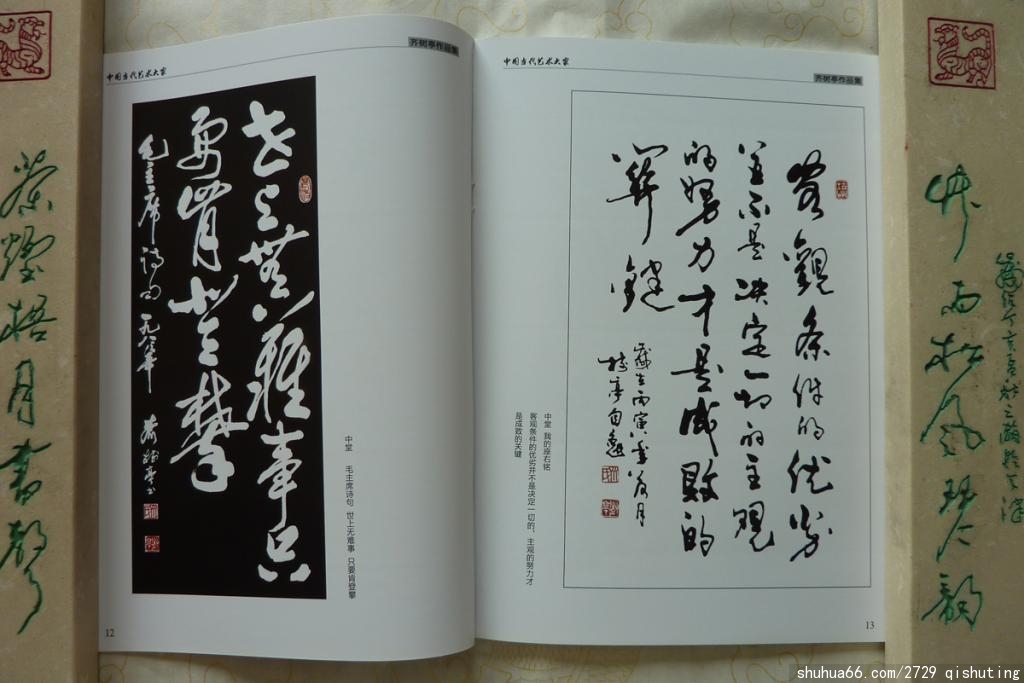 茶煙梧月書聲
中国当代艺术大家
齐树亭作品集
世上無難事只
要肯登攀
毛主席诗句
中堂 毛主席诗句 世上无难事 只要肯登攀
12
中国当代艺术大家
齐树亭作品集
客觀条件的优劣
並不是决定一切的主观
的努力才是成敗的
関鍵
歲在丙寅
树亭自勉
中堂 我的座右铭
客观条件的优劣并不是决定一切的，主观的努力才
是成败的关键
13
竹雨松風琴韻
shuhua66.com/2729 qishuting